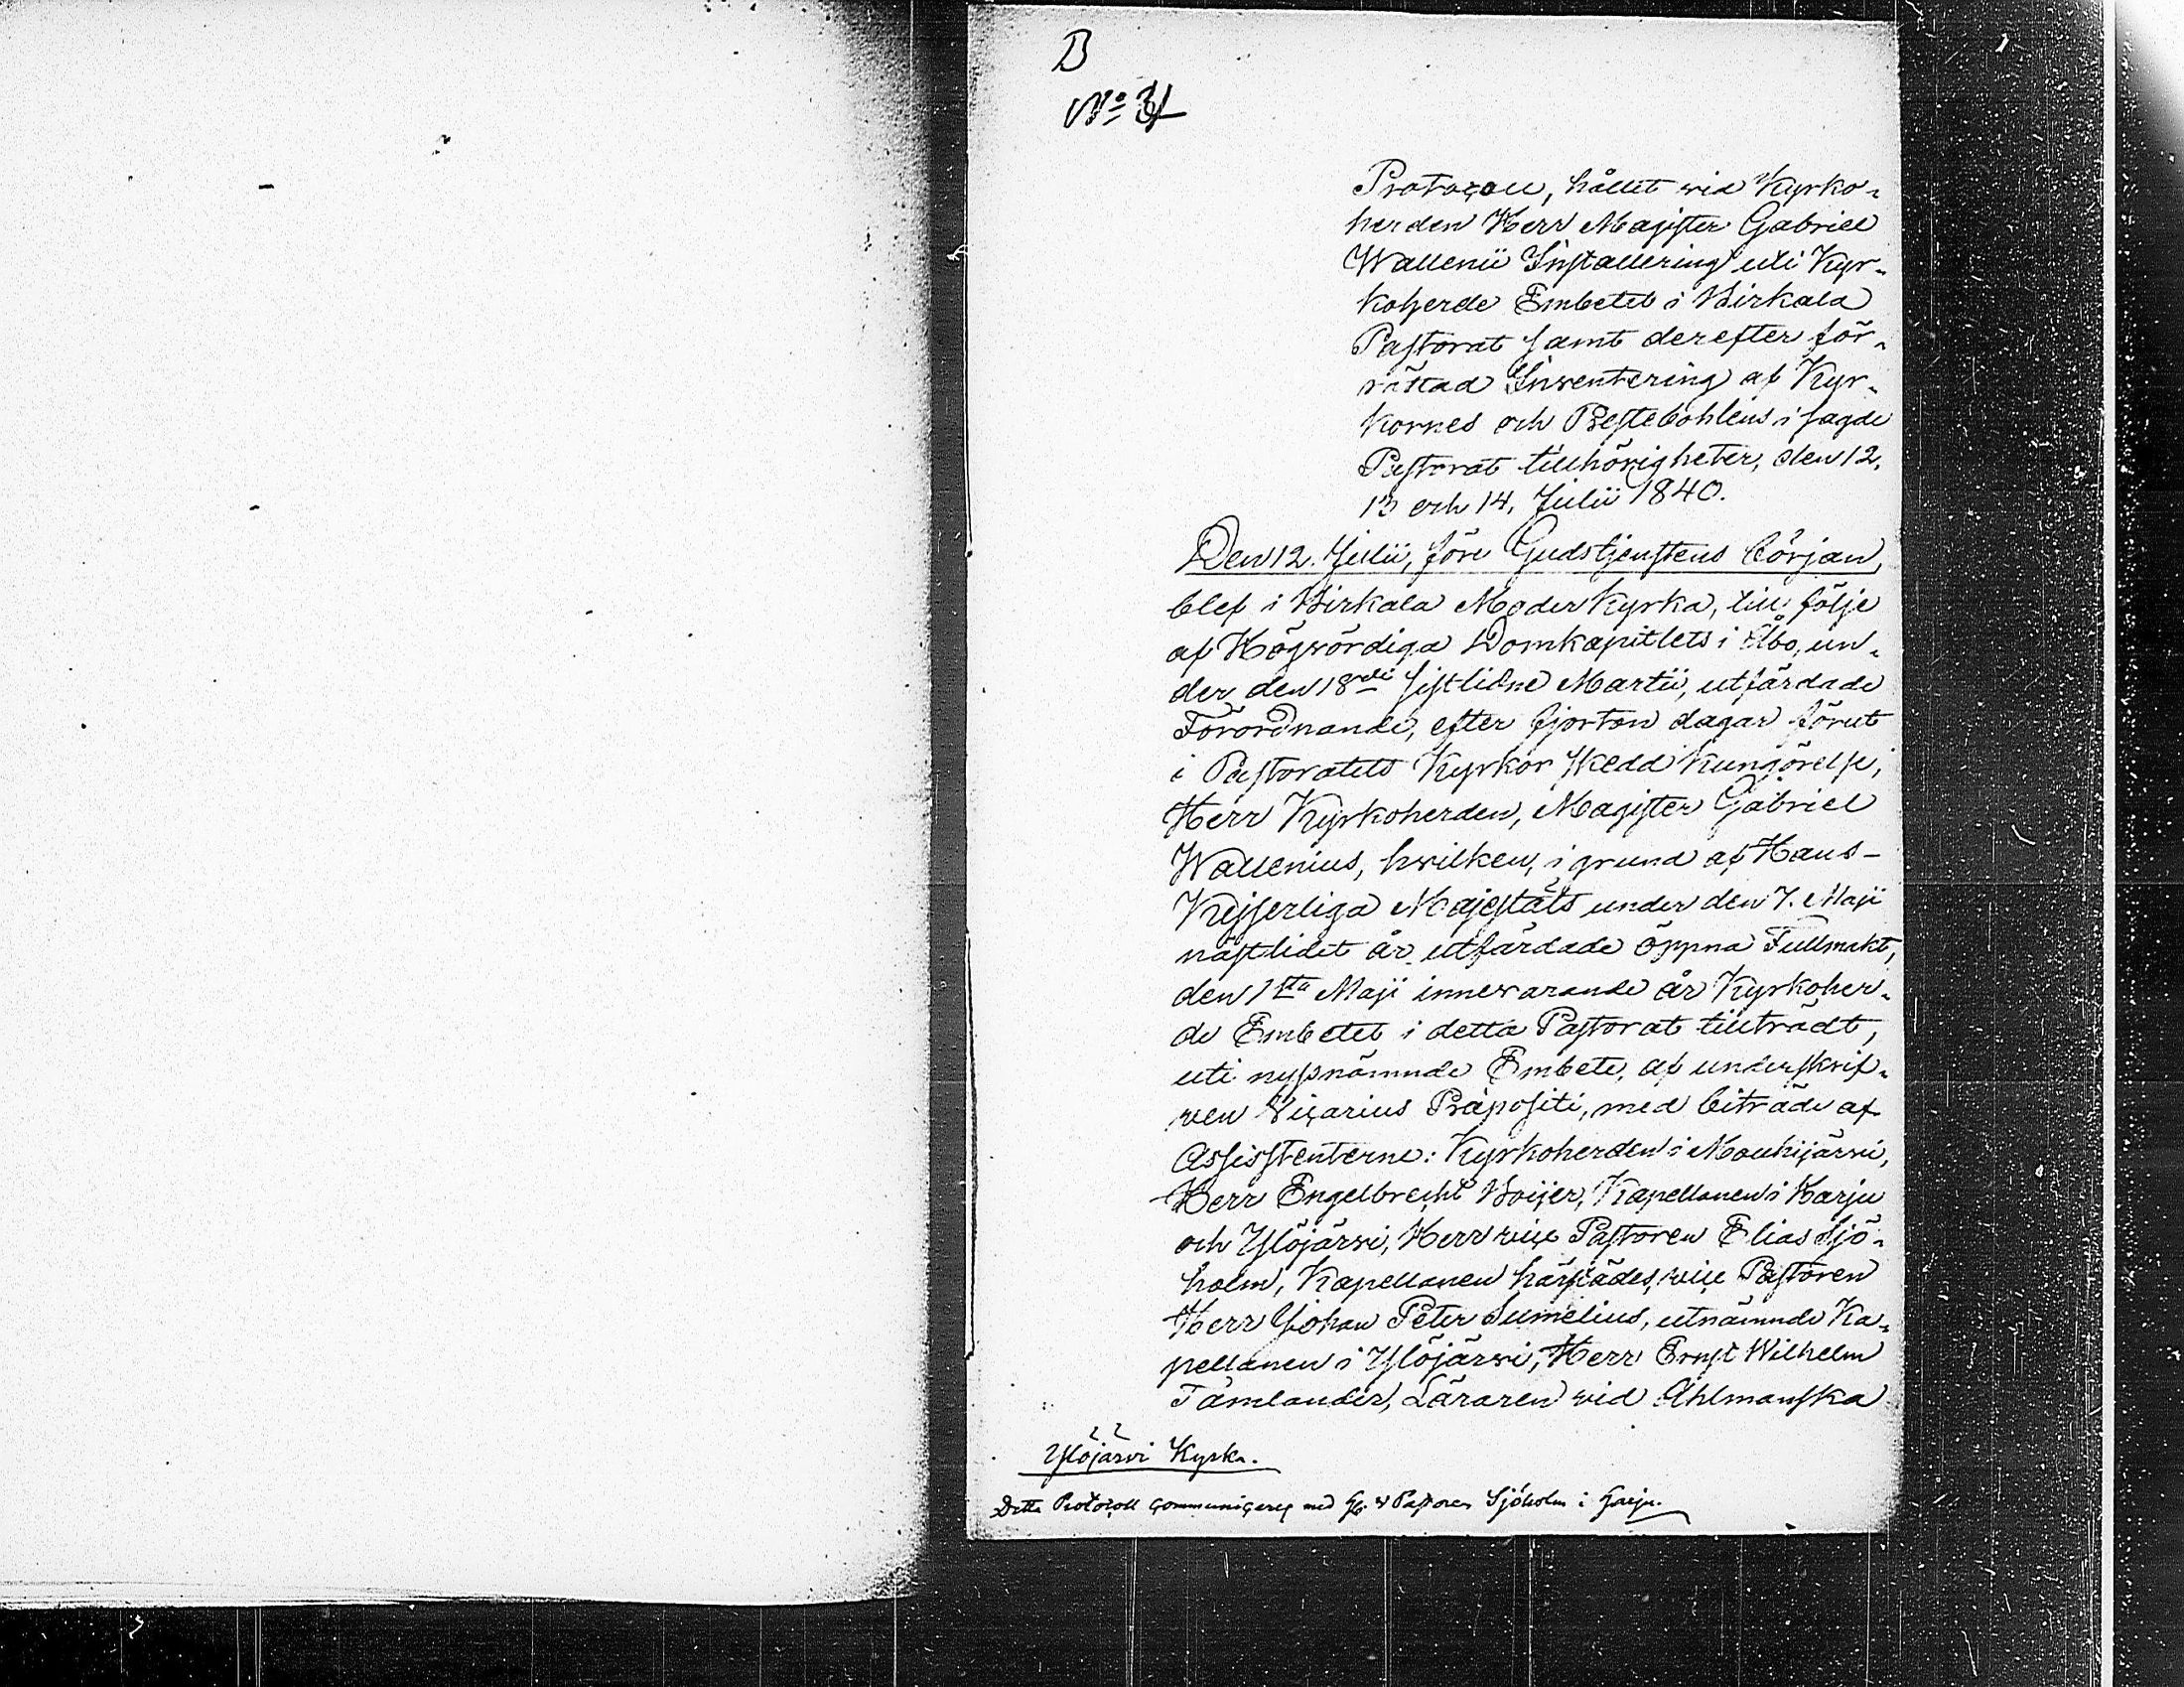 B
No
Protocoll, hållet wid Kyrko-
herden Herr Magister Gabriel
Wallenii Installering uti Kyr-
koherde Embetet i Birkala
Pastorat samt derefter för-
rättad Inventering af Kyr-
kornes och Prestebohlens i sagde
Pastorat tillhörigheter, den 12,
13 och 14, Julii 1840.
Den 12. Julii, före Gudstjenstens början,
blef i Birkala Moderkyrka, till följe
af Högvördiga Domkapitlets i Åbo, un-
der den 18de sistlidne Martii, utfärdade
Förordnande, efter fjorton dagar förut
i Pastoratets Kyrkor skedd kungörelse,
Herr Kyrkoherden, Magister Gabriel
Wallenius, hvilken, i grund af Hans-
Kejserliga Majestäts under den 7. Maji
nästlidet år utfärdade öppna Fullmakt,
den 1sta Maji innevarande år Kyrkoher-
de Embetet i detta Pastorat tillträdt,
uti nyssnämnde Embete, af underskrif-
ven Vicarius Præpositi, med biträde af
Assistenterne: Kyrkoherden i Mouhijärvi,
Herr Engelbrecht Boijer, Kapellanen i Harju
och Ylöjärvi, Herr vice Pastoren Elias Sjö-
holm, Kapellanen härstädes, vice Pastoren
Herr Johan Peter Sumelius, utnämnde Ka-
pellanen i Ylöjärvi, Herr Ernst Wilhelm
Tämlander, Läraren vid Åhlmanska
Ylöjärvi Kyrka.
Detta Protocoll communiceras med H. v Pastoren Sjöholm i Harju.